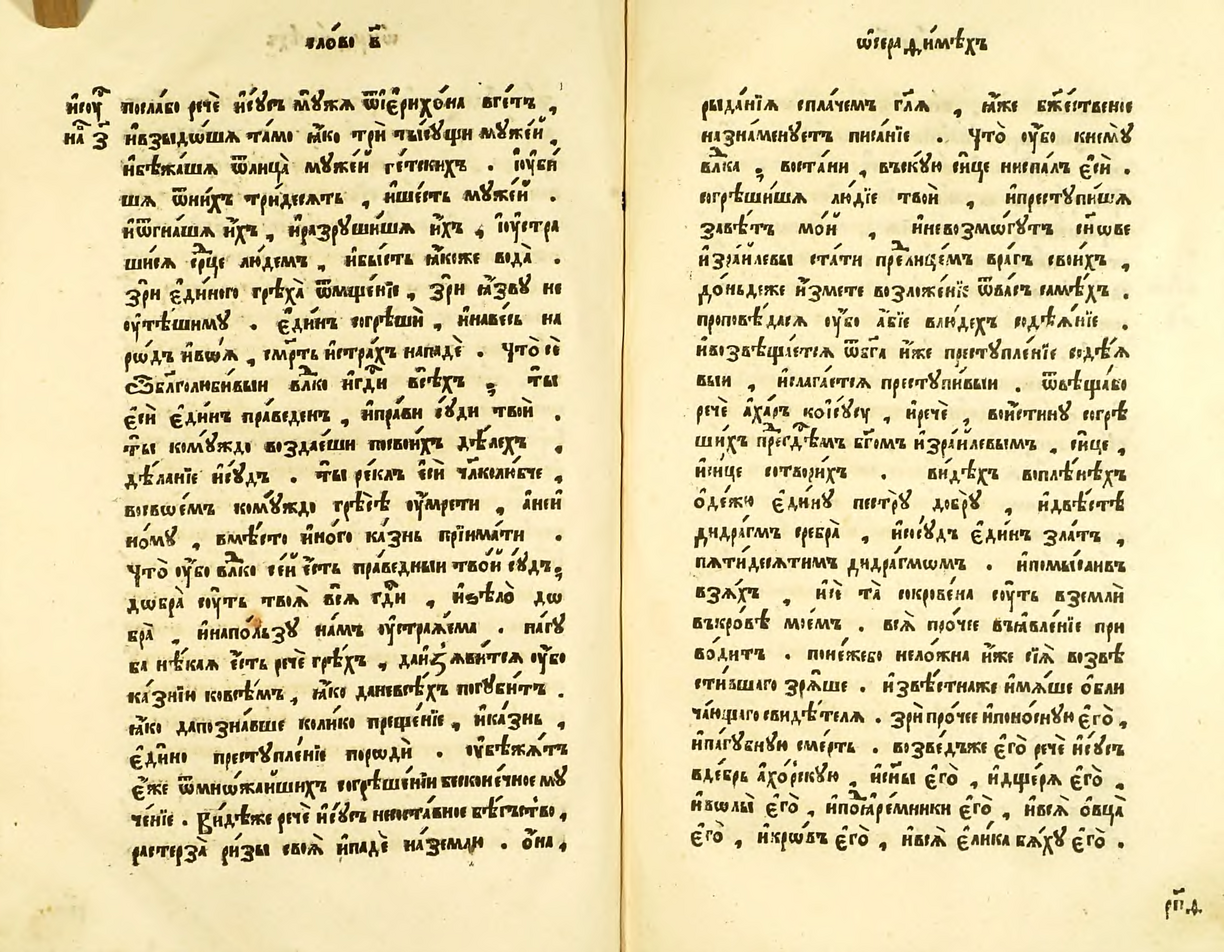 сло́во в҃
и҆исоу҃
на з҃
посла́бо речѐ и҆исꙋ́съ мꙋ́жꙗ ѿі҆ерихо́на вге́тъ ,
и҆взыдо́шѧ та́мо ꙗ҆́ко трѝ ты́сѹщи мꙋже́й ,
и҆бѣжа́шѧ ѿлица̀ мꙋже́й ге́тскихъ . і҆ѹ҆би́
шѧ ѿни́хъ три́десѧть , и҆ше́сть мꙋже́й .
и҆ѿгна́шѧ и҆́хъ , и҆разрꙋши́шѧ и҆́хъ , і҆ѹ҆страши́сѧ
ср҃це лю́демъ , и҆бы́сть ꙗ҆́коже вода̀ .
зрѝ є҆ди́ного грѣха̀ ѿмще́нїе , зрѝ ꙗ҆́звꙋ не
ѹ҆тѣ́шимꙋ . є҆ди́нъ согрѣшѝ , и҆наве́сь на
ро́дъ и҆во́ѧ , сме́рть и҆стра́хъ нападѐ . Что̀ сѐ
ѽбл҃голюби́выи влⷣко и҆гдⷭ҇и всѣ́хъ ; ты̀
є҆сѝ є҆ди́нъ пра́веденъ , и҆пра́ви сꙋдѝ твоѝ .
ты̀ комꙋ́ждо воздае́ши посвои́хъ дѣ́лехъ ,
дѣ́ланїе и҆сꙋ́дъ . ты̀ ре́клъ є҆сѝ чл҃колю́бче ,
восвое́мъ комꙋ́ждо грѣсѣ̀ ѹ҆мре́ти , а҆ней
но́мꙋ , вмѣ́сто и҆но́го ка́знь прїима́ти .
Что̀ ѹ҆́бо влⷣко се́й є҆́сть пра́ведныи тво́й сꙋ́дъ ;
добра̀ сѹ́ть твоѧ̀ всѧ̀ гдⷭ҇и , и҆ѕѣло̀ до
бра̀ , и҆напо́льзꙋ на́мъ ѹ҆страѧ́ема . пагꙋ
ба нѣ́каѧ є҆́сть речѐ грѣ́хъ , даи҆зꙗви́тсѧ ѹ҆́бо
ка́знїи ковсѣ́мъ , ꙗ҆́ко даневсѣ́хъ погꙋби́тъ .
ꙗ҆́ко дапозна́вше коли́ко преще́нїе , и҆ка́знь ,
є҆ди́но престꙋпле́нїе породѝ . ѹ҆бѣжѧ́тъ
є҆́же ѿмно́жайшихъ согрѣше́нїи бесконе́чное мꙋ
че́нїе . Ви́дѣже речѐ и҆исꙋ́съ неоста́вное бѣ́гство ,
растерза̀ ри́зы своѧ̀ и҆падѐ на́земли . о҆́на ,
ѡ҆сера́димѣхъ
рыда́нїѧ спла́чемъ гл҃ѧ , ꙗ҆́же бж҃е́ственое
назна́менꙋетъ писа́нїе . Что̀ ѹ҆́бо ксемꙋ̀
влⷣка ; воста́ни , въскꙋ́ю си́це ниспа́лъ є҆сѝ .
согрѣши́шѧ лю́дїе твоѝ , и҆престꙋпи́шѧ
завѣ́тъ мо́й , и҆невозмо́гꙋтъ сы́нове
и҆зра́илевы ста́ти преⷣлице́мъ вра́гъ свои́хъ ,
до́ньдеже и҆́змете возложе́нїе ѿва́съ самѣ́хъ .
проповѣ́дасѧ ѹ҆́бо а҆́бїе влю́дехъ содѣѧ́нїе .
и҆возвѣща́етсѧ ѿбг҃а и҆́же престꙋпле́нїе содѣ́ѧ
выи , и҆слага́етсѧ престꙋпи́выи . ѿвѣща́бо
речѐ а҆ха́ръ коі҆сꙋ́сꙋ , и҆речѐ , вои́стинꙋ согрѣ
ши́хъ преⷣгдⷭ҇емъ бг҃омъ и҆зра́илевымъ , си́це ,
и҆си́це сотвори́хъ . ви́дѣхъ воплѣ́нѣхъ
о҆де́жю є҆ди́нꙋ пе́стрꙋ до́брꙋ , и҆двѣ́стѣ
дидра́гмъ сребра̀ , и҆сосꙋ́дъ є҆ди́нъ зла́тъ ,
пѧти́десѧтимъ дидра́гмомъ . и҆помы́сливъ
взѧ́хъ , и҆сѐ та̀ сокрове́на сѹ́ть вземлѝ
въкро́вѣ мое́мъ . всѧ̀ про́чее въꙗвле́нїе при
во́дитъ . поне́жебо нело́жна и҆́же сїѧ̀ возвѣ
сти́вшаго зрѧ́ше . и҆звѣ́стнаже и҆мѧ́ше ѡбли
ча́ющаго свидѣ́телѧ . зрѝ про́чее и҆поно́снꙋю є҆го̀ ,
и҆па́гꙋбнꙋю сме́рть . возведъ́же є҆го̀ речѐ и҆исꙋ́съ
вде́брь а҆хо́рскꙋю , и҆сы́ны є҆го̀ , и҆дще́рѧ є҆го̀ ,
и҆волы̀ є҆го̀ , и҆поⷣꙗре́мники є҆го̀ , и҆всѧ̀ о҆́вца̀
є҆го̀ , и҆кро́въ є҆го̀ , и҆всѧ̀ є҆ли́ка бѧ́хꙋ є҆го̀ .
рп҃д